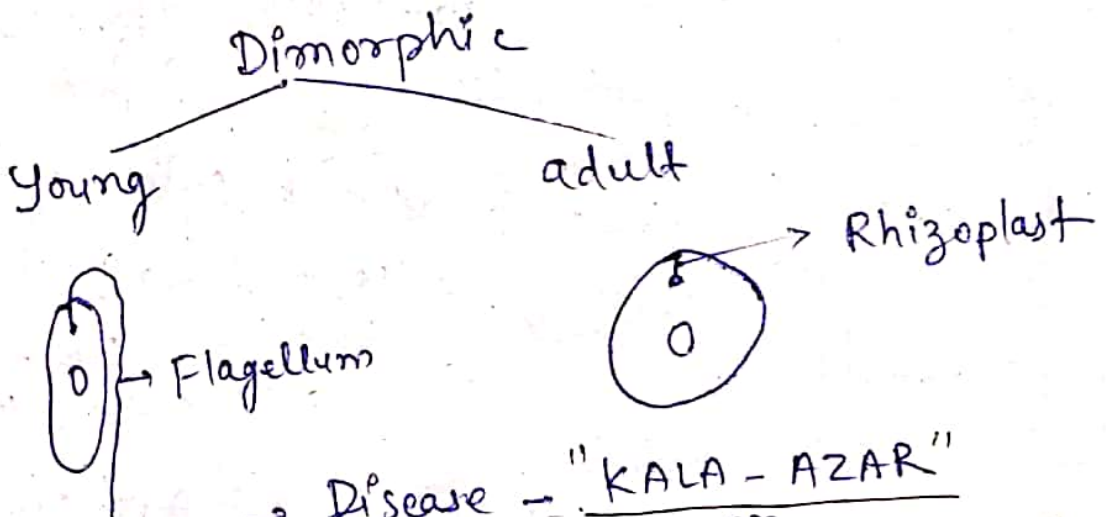 Dimorphic
Young adult
Rhizoplast
Flagellum
• Disease - "KALA-AZAR"